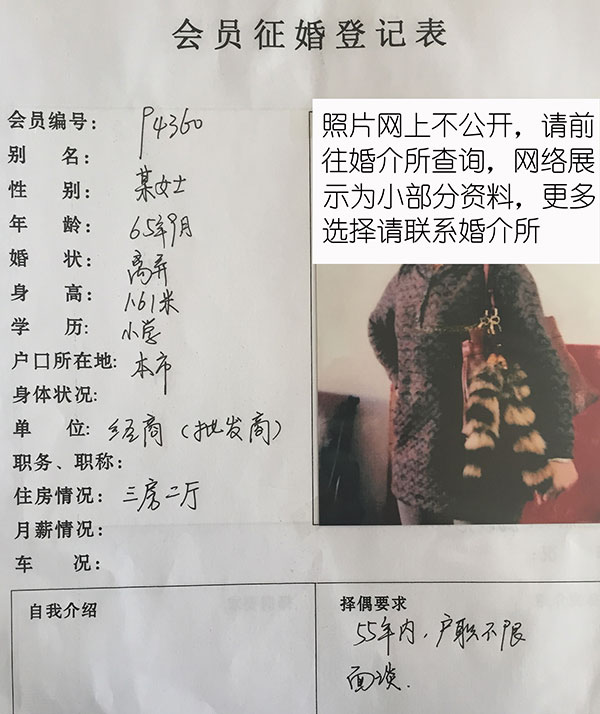 会员征婚登记表
会员编号: P4360
别 名: 某女士
性 别:
年 龄: 65年9月
婚 状: 离异
身 高: 1.61米
学 历: 小学
户口所在地: 本市
身体状况:
单 位: 经商（批发商）
职务、职称:
住房情况: 三房二厅
月薪情况:
车 况:
照片网上不公开，请前
往婚介所查询，网络展
示为小部分资料，更多
选择请联系婚介所
自我介绍
择偶要求
55年内，户职不限
面谈.